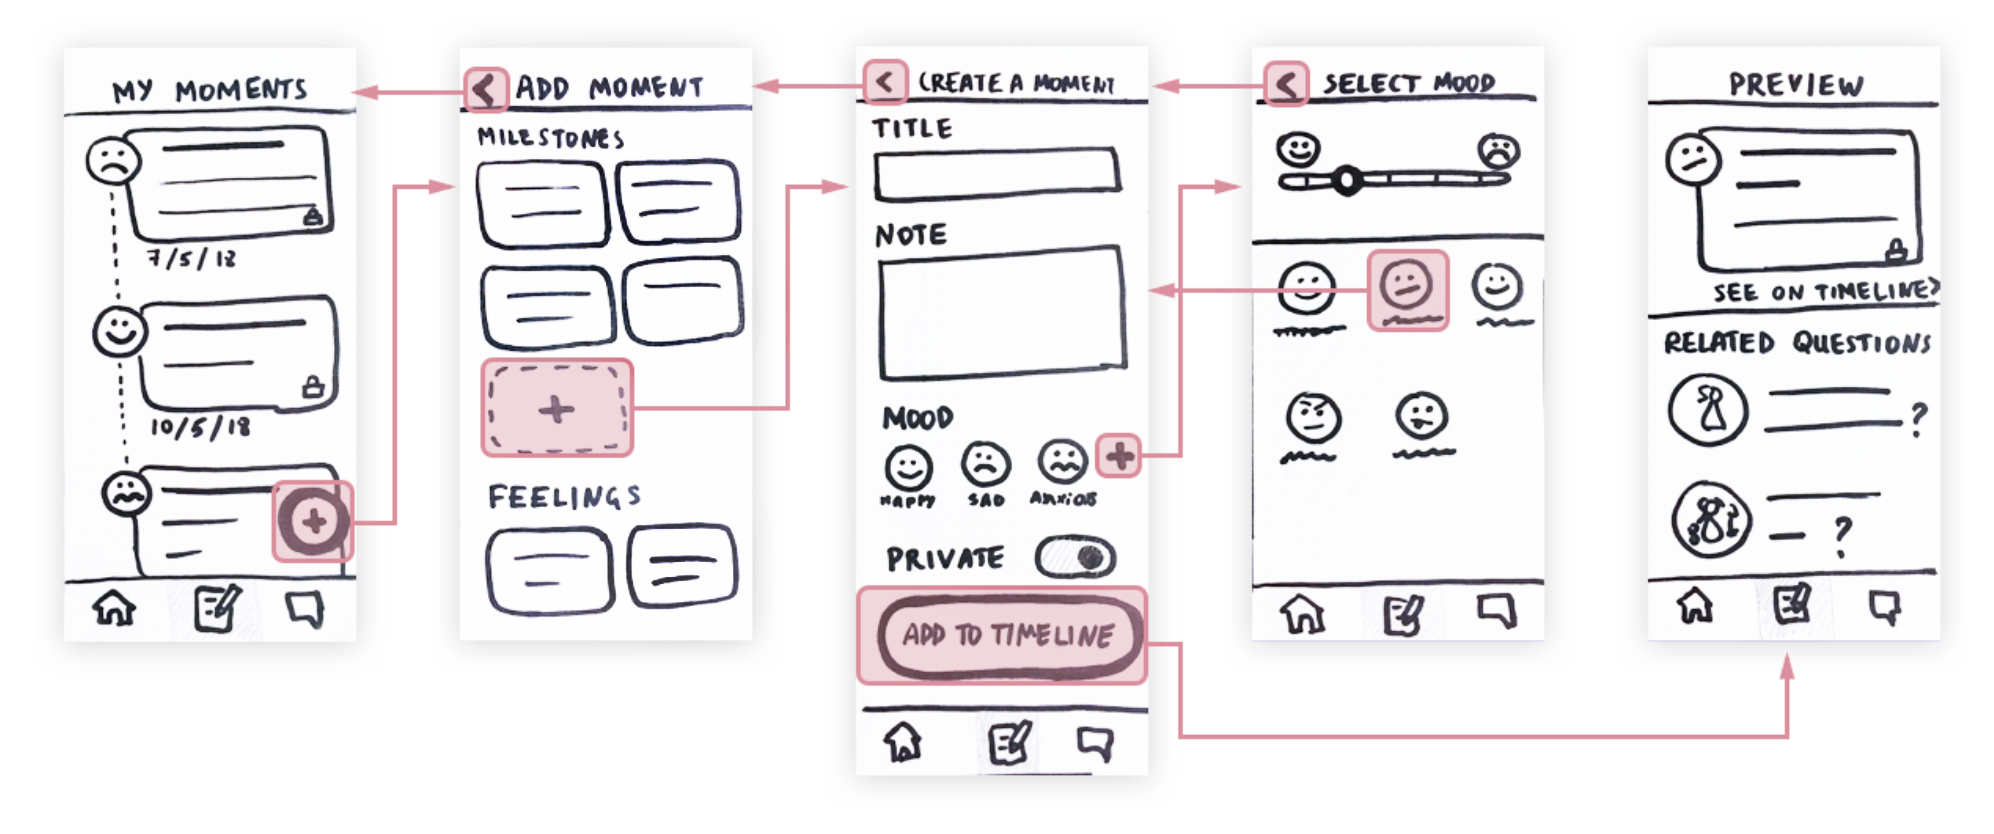 MY MOMENTS
7/5/18
10/5/18
ADD MOMENT
MILESTONES
FEELINGS
CREATE A MOMENT
TITLE
NOTE
MOOD
HAPPY SAD ANXIOUS
PRIVATE
ADD TO TIMELINE
SELECT MOOD
PREVIEW
SEE ON TIMELINE>
RELATED QUESTIONS
?
?